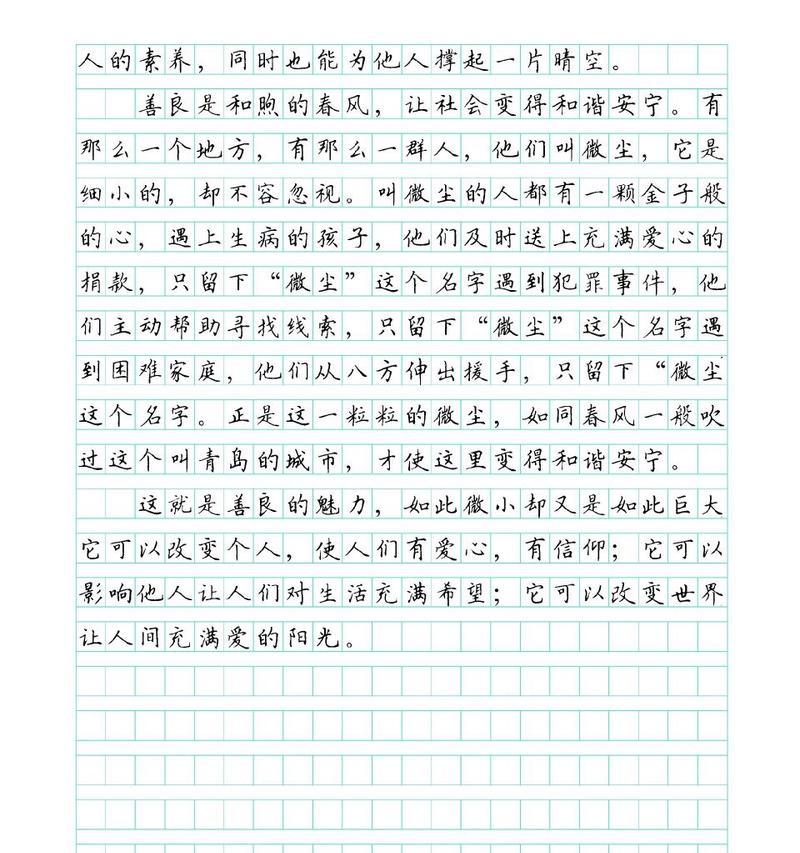 人的素养，同时也能为他人撑起一片晴空。
善良是和煦的春风，让社会变得和谐安宁。有
那么一个地方，有那么一群人，他们叫微尘，它是
细小的，却不容忽视。叫微尘的人都有一颗金子般
的心，遇上生病的孩子，他们及时送上充满爱心的
捐款，只留下“微尘”这个名字遇到犯罪事件，他
们主动帮助寻找线索，只留下“微尘”这个名字遇
到困难家庭，他们从八方伸出援手，只留下“微尘
这个名字。正是这一粒粒的微尘，如同春风一般吹
过这个叫青岛的城市，才使这里变得和谐安宁。
这就是善良的魅力，如此微小却又是如此巨大
它可以改变个人，使人们有爱心，有信仰；它可以
影响他人让人们对生活充满希望；它可以改变世界
让人间充满爱的阳光。